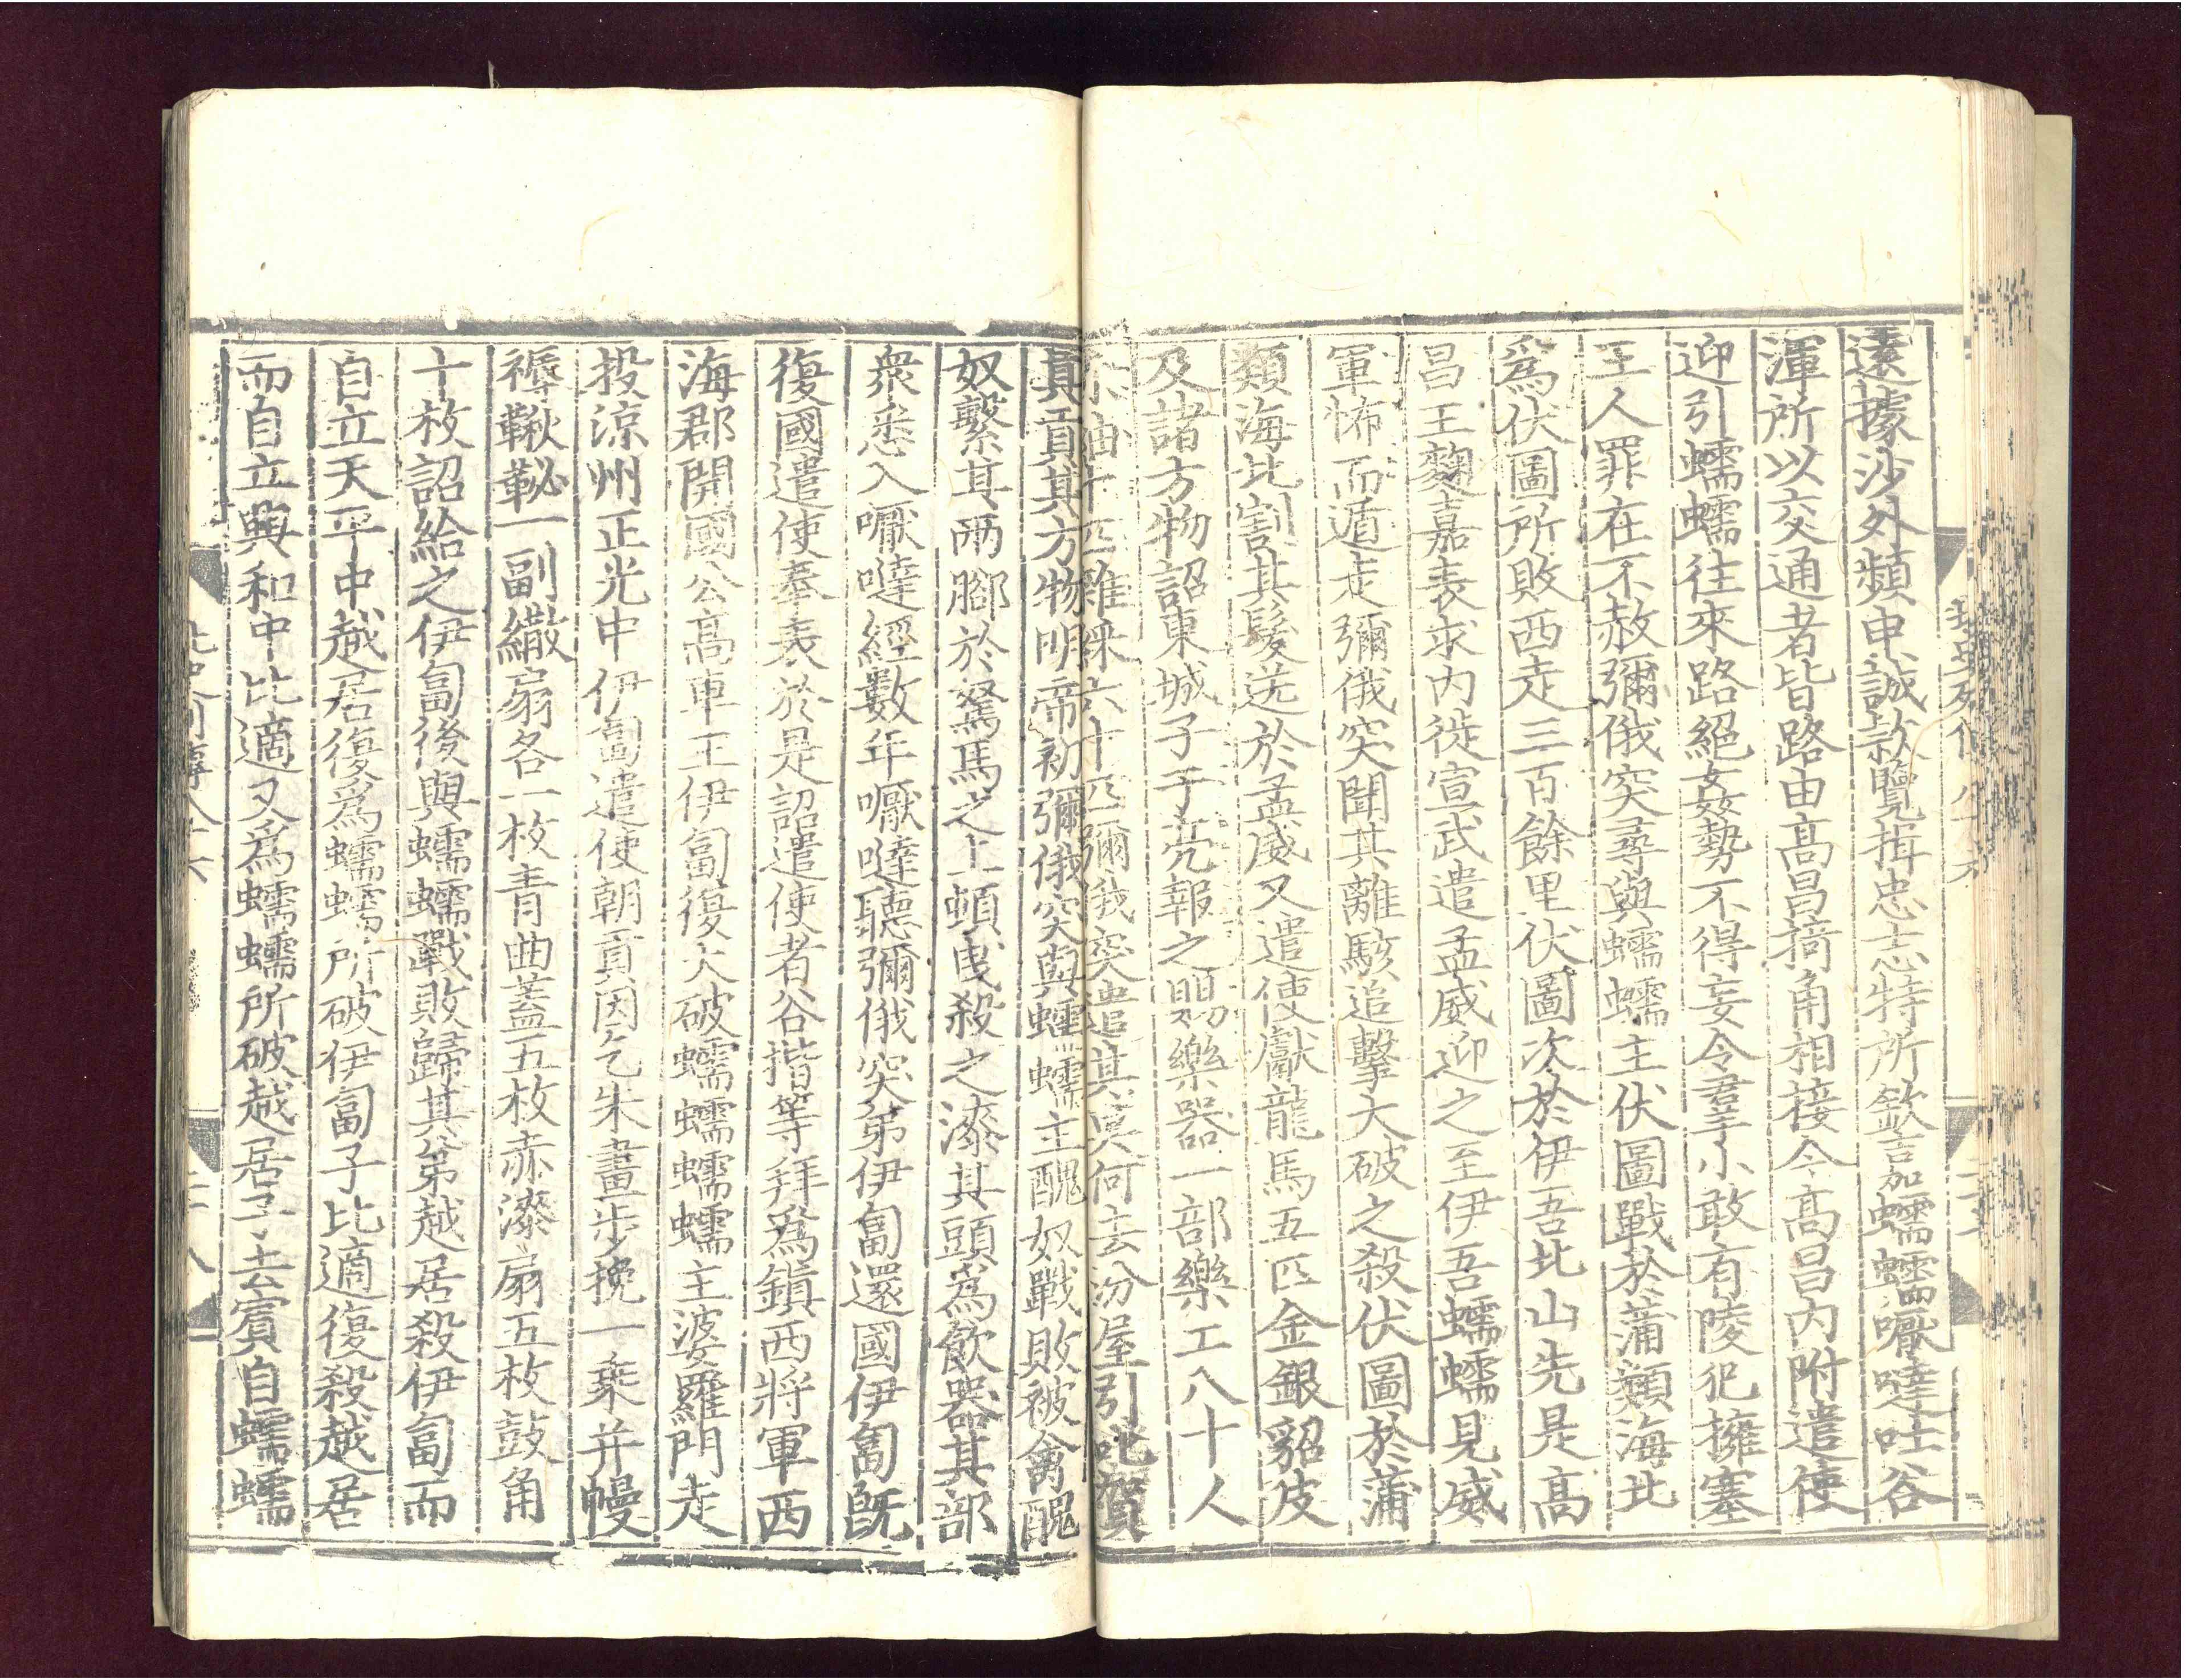 遠據沙外頻申誠款覽揖忠志特所欽嘉蠕蠕嚈噠吐谷
渾所以交通者皆路由高昌掎角相接今高昌内附遣使
迎引蠕蠕往來路絕姦勢不得妄令羣小敢有陵犯擁塞
王人罪在不赦彌俄突尋與蠕蠕主伏圖戰於蒲類海北
爲伏圖所敗西走三百餘里伏圖次於伊吾北山先是高
昌王麴嘉表求内徙宣武遣孟威迎之至伊吾蠕蠕見威
軍怖而遁走彌俄突聞其離駭追擊大破之殺伏圖於蒲
類海北割其髮送於孟威又遣使獻龍馬五匹金銀貂皮
及諸方物詔東城子于亮報之賜樂器一部樂工八十人
赤紬十匹雜綵六十匹彌俄突遣其莫何去汾屋引叱賀
真貢其方物明帝初彌俄突與蠕蠕主醜奴戰敗被禽醜
奴繫其兩腳於駑馬之上頓曳殺之漆其頭爲飲器其部
衆悉入嚈噠經數年嚈噠聽彌俄突弟伊匐還國伊匐旣
復國遣使奉表於是詔遣使者谷揩等拜爲鎮西將軍西
海郡開國公高車王伊匐復大破蠕蠕蠕蠕主婆羅門走
投涼州正光中伊匐遣使朝貢因乞朱畫步挽一乘并幔
褥鞦䩛一副繖扇各一枚青曲蓋五枚赤漆扇五枚鼓角
十枚詔給之伊匐後與蠕蠕戰敗歸其弟越居殺伊匐而
自立天平中越居復爲蠕蠕所破伊匐子比適復殺越居
而自立興和中比適又爲蠕蠕所破越居子去賓自蠕蠕
北史列傳八十六
二十八